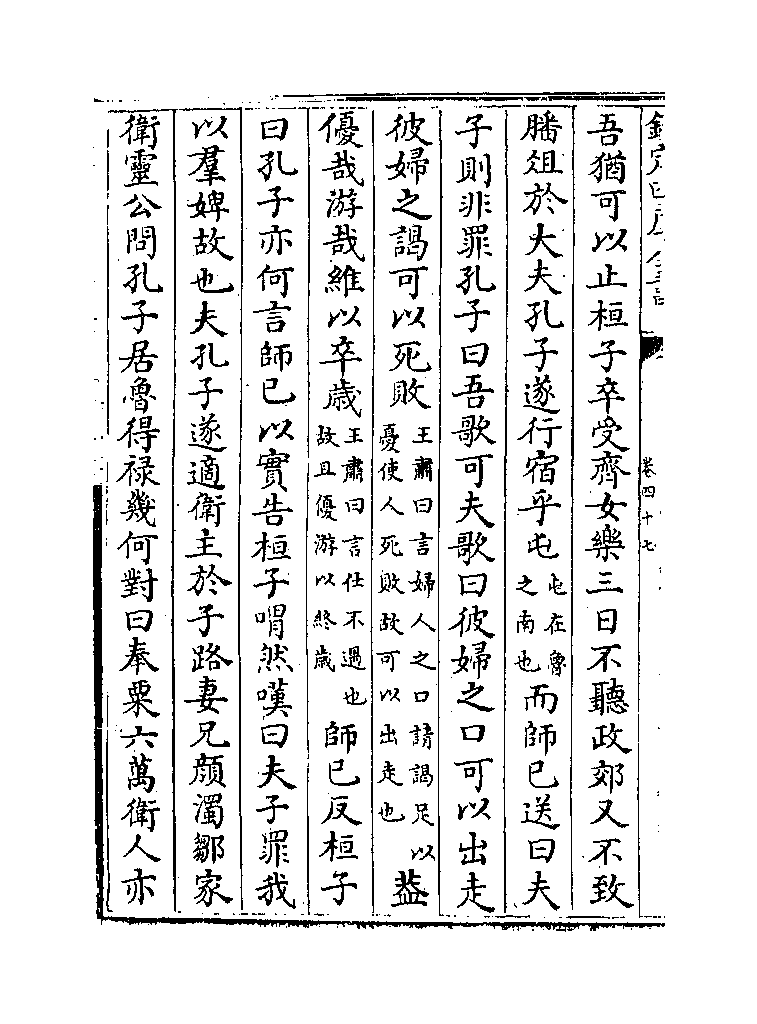 欽定四庫全書
卷四十七
吾猶可以止桓子卒受齊女樂三日不聽政郊又不致
膰俎於大夫孔子遂行宿乎屯屯在魯之南也而師已送曰夫
子則非罪孔子曰吾歌可夫歌曰彼婦之口可以出走
彼婦之謁可以死敗王肅曰言婦人之口請謁足以憂使人死敗故可以出走也葢
優哉游哉維以卒歳王肅曰言仕不遇也故且優游以終歳師已反桓子
曰孔子亦何言師已以實告桓子喟然嘆曰夫子罪我
以羣婢故也夫孔子遂適衛主於子路妻兄顔濁鄒家
衛靈公問孔子居魯得禄幾何對曰奉粟六萬衛人亦